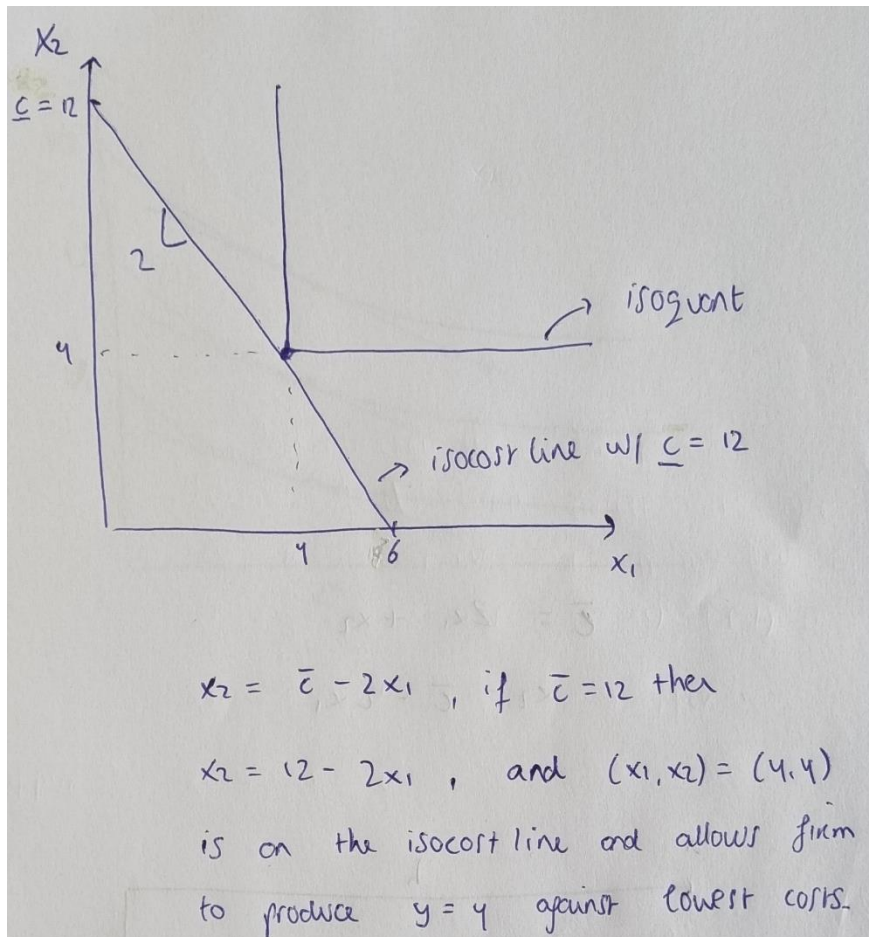 X2
c = 12
2
isoquant
4
isocost line w/ c = 12
4
6
x1
x2 = c̄ - 2x1 , if c̄ = 12 then
x2 = 12 - 2x1 , and (x1, x2) = (4,4)
is on the isocost line and allows firm
to produce y = 4 against lowest costs.